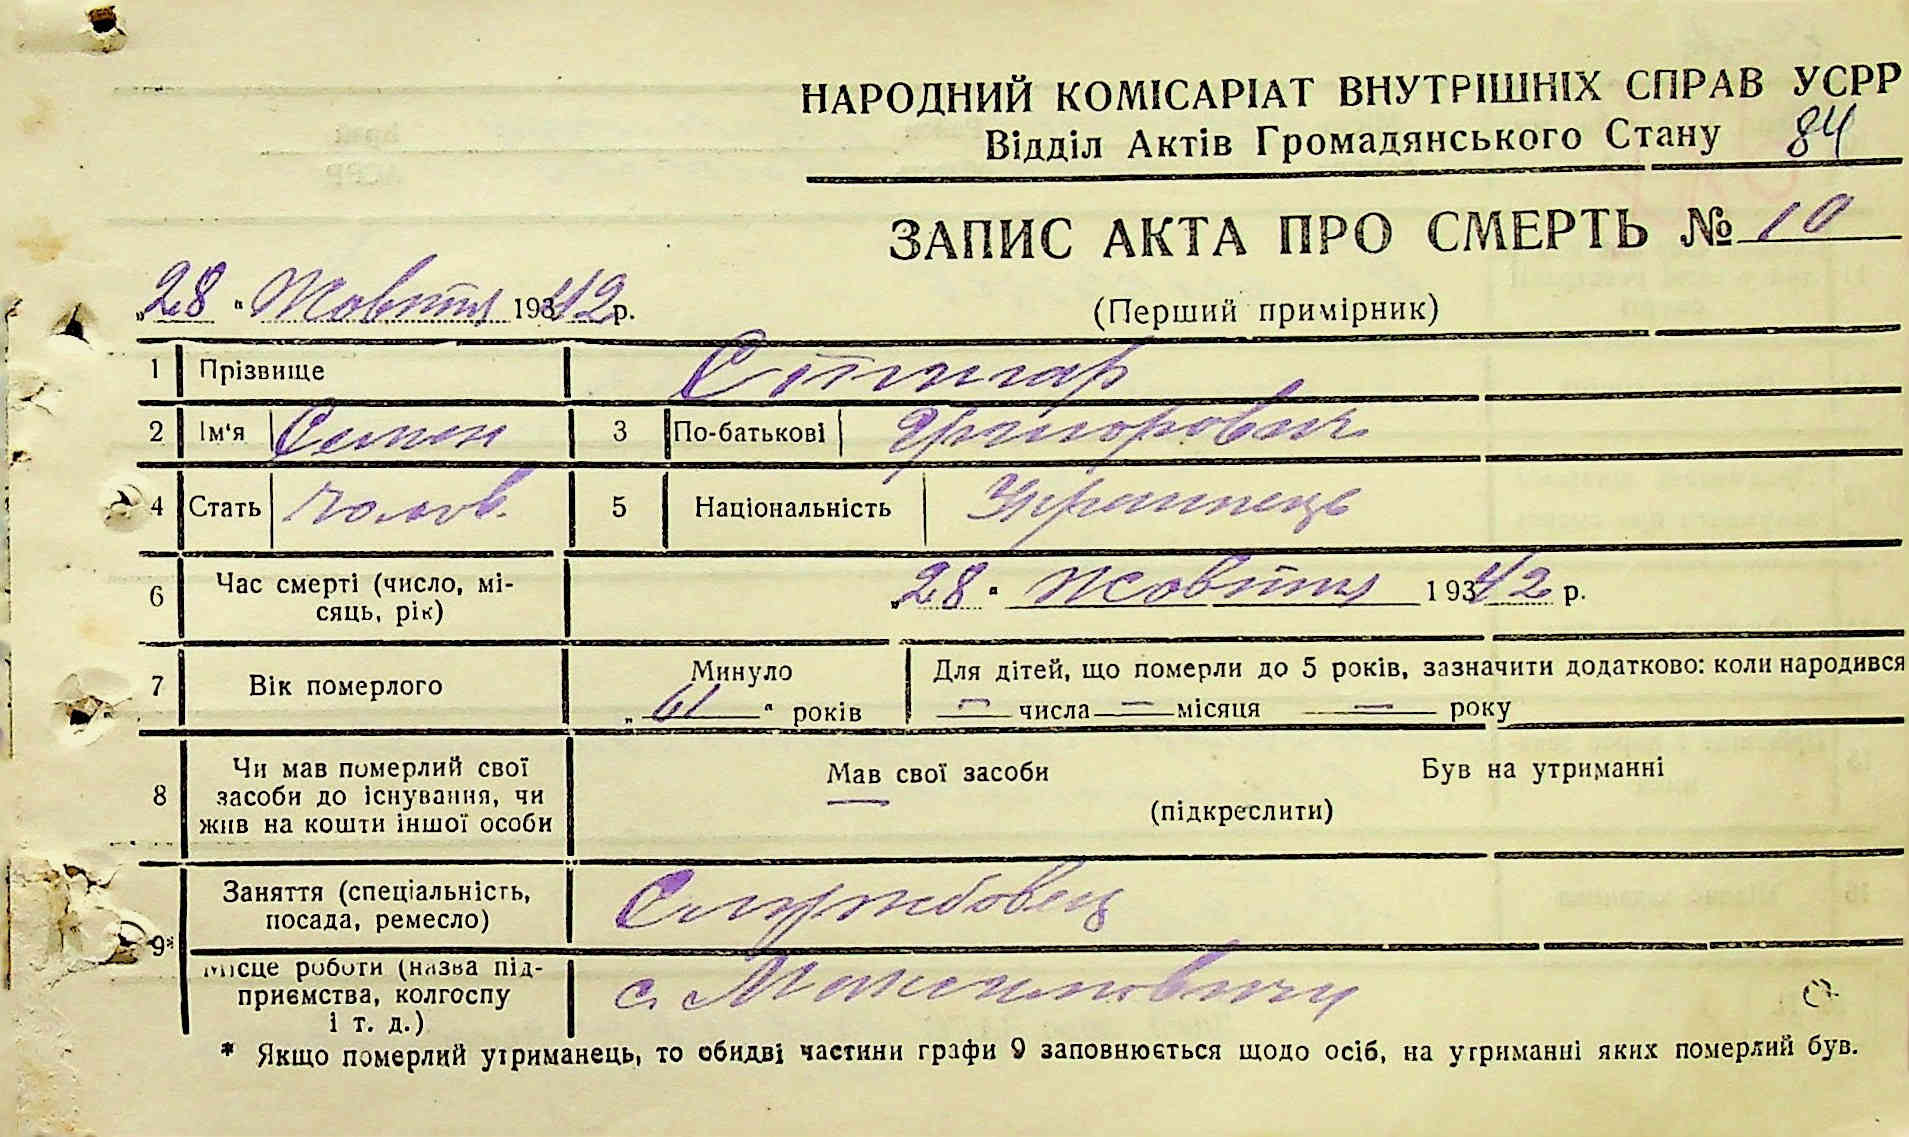 НАРОДНИЙ КОМІСАРІАТ ВНУТРІШНІХ СПРАВ УСРР
Відділ Актів Громадянського Стану 84
ЗАПИС АКТА ПРО СМЕРТЬ № 10
„28 " Жовтня 19342 р.
(Перший примірник)
1 Прізвище
2 Ім'я Семен 3 По-батькові Григорович
4 Стать чолов. 5 Національність Українець
6 Час смерті (число, мі-
сяць, рік) „28 " Жовтня 19342 р.
7 Вік померлого Минуло „ 61 " років Для дітей, що померли до 5 років, зазначити додатково: коли народився
— числа — місяця — року
8 Чи мав померлий свої
засоби до існування, чи
жив на кошти іншої особи
Мав свої засоби Був на утриманні
(підкреслити)
9* Заняття (спеціальність,
посада, ремесло) Службовець
Місце роботи (назва під-
приємства, колгоспу
і т. д.) с. Максимовичи
* Якщо померлий утриманець, то обидві частини графи 9 заповнюється щодо осіб, на утриманні яких померлий був.